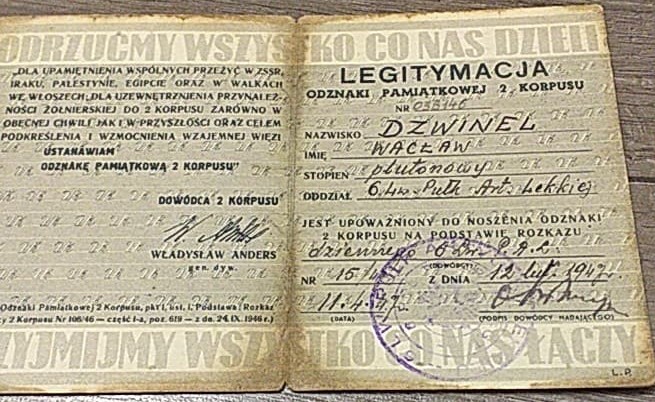 ODRZUĆMY WSZYSTKO CO NAS DZIELI
"DLA UPAMIĘTNIENIA WSPÓLNYCH PRZEŻYĆ W ZSSR,
IRAKU, PALESTYNIE, EGIPCIE ORAZ W WALKACH
WE WŁOSZECH, DLA UZEWNĘTRZNIENIA PRZYNALEŻ-
NOŚCI ŻOŁNIERSKIEJ DO 2 KORPUSU ZARÓWNO W
OBECNEJ CHWILI JAK I W PRZYSZŁOŚCI ORAZ CELEM
PODKREŚLENIA I WZMOCNIENIA WZAJEMNEJ WIĘZI
USTANAWIAM
ODZNAKĘ PAMIĄTKOWĄ 2 KORPUSU"
DOWÓDCA 2 KORPUSU
WŁADYSŁAW ANDERS
gen. dyw.
Odznaki Pamiątkowej 2 Korpusu, pkt I, ust. I, Podstawa: Rozkaz
2 Korpusu Nr 106/46 — część I-a, poz. 619 — z dn. 24. IX. 1946 r.)
LEGITYMACJA
ODZNAKI PAMIĄTKOWEJ 2 KORPUSU
NR 033146
NAZWISKO DZWINEL
IMIĘ WACŁAW
STOPIEŃ plutonowy
ODDZIAŁ 6 Lw. Pułk Art. Lekkiej
JEST UPOWAŻNIONY DO NOSZENIA ODZNAKI
2 KORPUSU NA PODSTAWIE ROZKAZU
(DOWÓDCY)
NR 15 Z DNIA 12 lut. 1947 r.
11.4.47
(DATA) (PODPIS DOWÓDCY NADAJĄCEGO)
WSZYSTKO CO NAS ŁĄCZY
L.P.